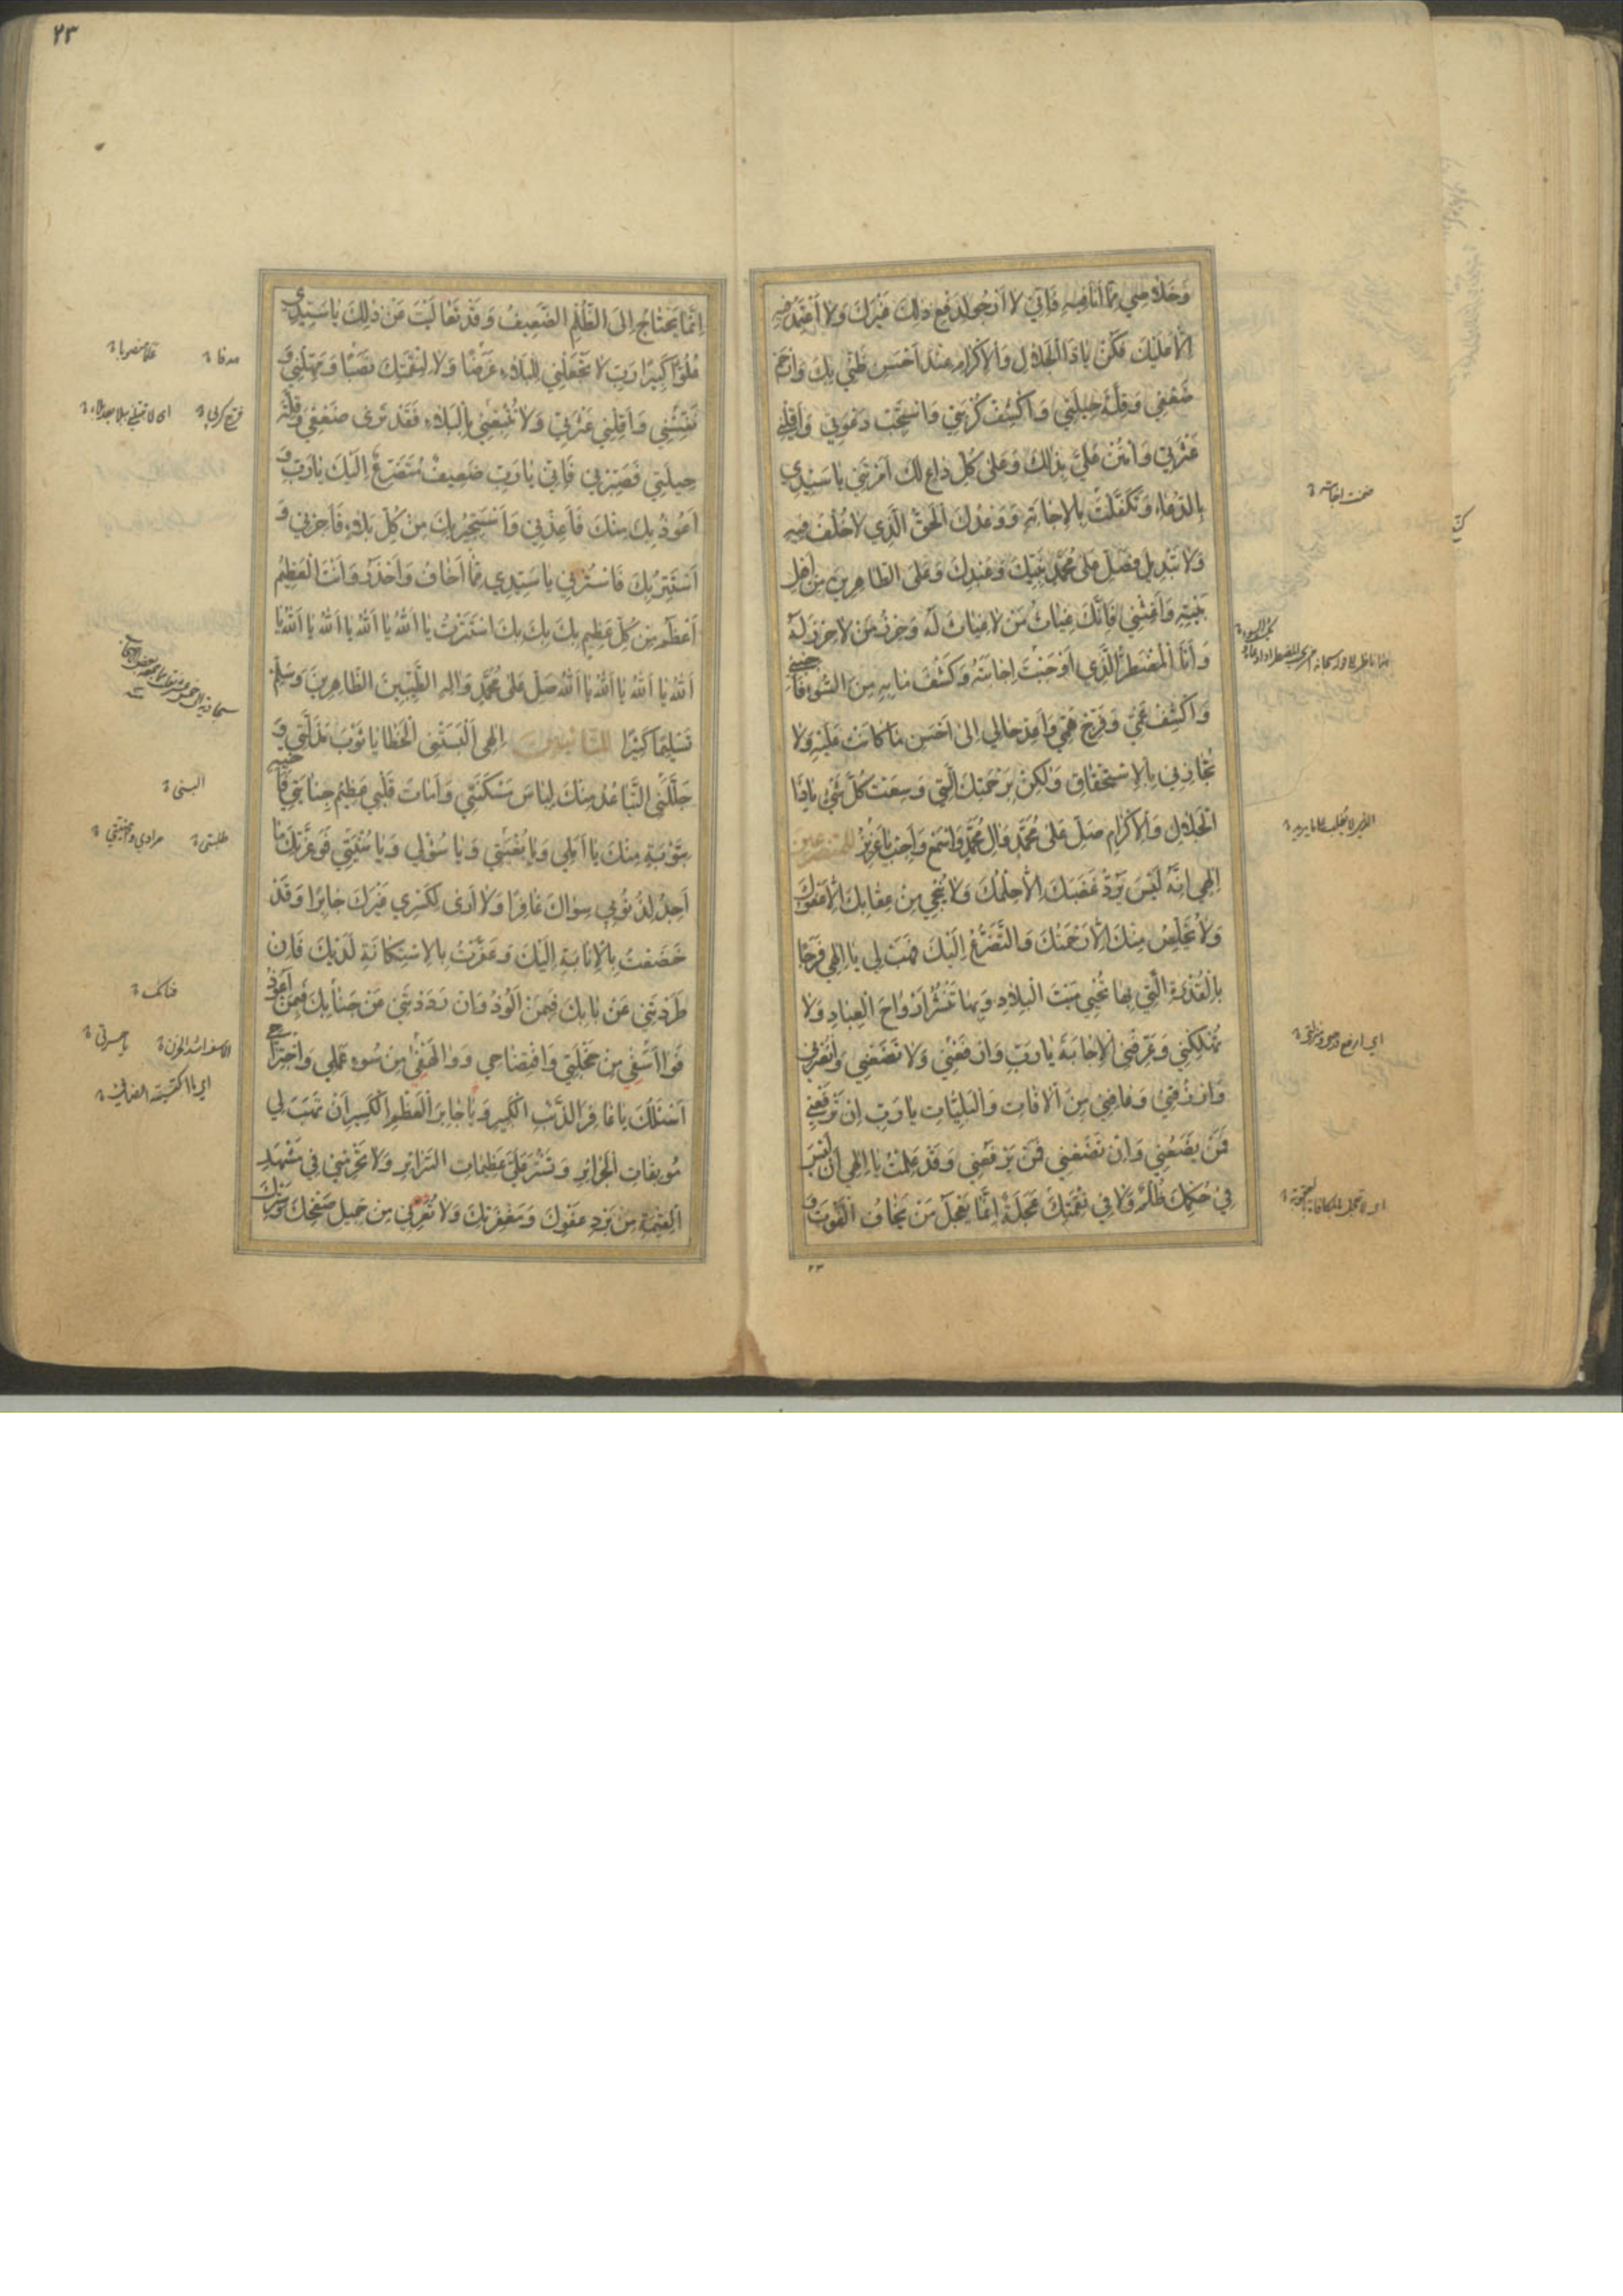 وَخَلَاصِي مِمَّا أَنَا فِيهِ فَإِنِّي لَا أَرْجُو لِدَفْعِ ذَلِكَ غَيْرَكَ وَلَا أَعْتَمِدُ فِيهِ
اِلَّا عَلَيْكَ فَكُنْ يَا ذَا الْجَلَالِ وَالْاِكْرَامِ عِنْدَ اَحْسَنِ ظَنِّي بِكَ وَارْحَمْ
ضَعْفِي وَقِلَّةَ حِيلَتِي وَاكْشِفْ كُرْبَتِي وَاسْتَجِبْ دَعْوَتِي وَاَقِلْنِي
عَثْرَتِي وَامْنُنْ عَلَيَّ بِذٰلِكَ وَعَلٰى كُلِّ دَاعٍ لَكَ اَمَرْتَنِي يَا سَيِّدِي
بِالدُّعَاءِ وَتَكَفَّلْتَ بِالْاِجَابَةِ وَوَعْدُكَ الْحَقُّ الَّذِي لَا خُلْفَ فِيهِ
وَلَا تَبْدِيلَ فَصَلِّ عَلٰى مُحَمَّدٍ نَبِيِّكَ وَعَبْدِكَ وَعَلَى الطَّاهِرِينَ مِنْ اَهْلِ
بَيْتِهِ وَاَغِثْنِي فَاِنَّكَ غِيَاثُ مَنْ لَا غِيَاثَ لَهُ وَحِرْزُ مَنْ لَا حِرْزَ لَهُ
وَاَنَا الْمُضْطَرُّ الَّذِي اَوْجَبْتَ اِجَابَتَهُ وَكَشْفَ مَا بِهِ مِنَ السُّوءِ فَاَجِبْنِي
وَاكْشِفْ غَمِّي وَفَرِّجْ هَمِّي وَاَعِدْ حَالِي اِلٰى اَحْسَنِ مَا كَانَتْ عَلَيْهِ وَلَا
تُجَازِنِي بِالْاِسْتِحْقَاقِ وَلٰكِنْ بِرَحْمَتِكَ الَّتِي وَسِعَتْ كُلَّ شَيْءٍ يَا ذَا
الْجَلَالِ وَالْاِكْرَامِ صَلِّ عَلٰى مُحَمَّدٍ وَآلِ مُحَمَّدٍ وَاسْمَعْ وَاَجِبْ يَا عَزِيزُ للمتضرعين
اِلٰهِي اِنَّهُ لَيْسَ يَرُدُّ غَضَبَكَ اِلَّا حِلْمُكَ وَلَا يُنْجِي مِنْ عِقَابِكَ اِلَّا عَفْوُكَ
وَلَا يُخَلِّصُ مِنْكَ اِلَّا رَحْمَتُكَ وَالتَّضَرُّعُ اِلَيْكَ فَهَبْ لِي يَا اِلٰهِي فَرَجًا
بِالْقُدْرَةِ الَّتِي بِهَا تُحْيِي مَيْتَ الْبِلَادِ وَبِهَا تَنْشُرُ اَرْوَاحَ الْعِبَادِ وَلَا
تُهْلِكْنِي وَعَرِّفْنِي الْاِجَابَةَ يَا رَبِّ وَارْفَعْنِي وَلَا تَضَعْنِي وَانْصُرْنِي
وَارْزُقْنِي وَعَافِنِي مِنَ الْآفَاتِ وَالْبَلِيَّاتِ يَا رَبِّ اِنْ تَرْفَعْنِي
فَمَنْ يَضَعُنِي وَاِنْ تَضَعْنِي فَمَنْ يَرْفَعُنِي وَقَدْ عَلِمْتُ يَا اِلٰهِي اَنْ لَيْسَ
فِي حُكْمِكَ ظُلْمٌ وَلَا فِي نَقِمَتِكَ عَجَلَةٌ اِنَّمَا يَعْجَلُ مَنْ يَخَافُ الْفَوْتَ وَ
٢٣
٢٣
اِنَّمَا يَحْتَاجُ اِلَى الظُّلْمِ الضَّعِيفُ وَقَدْ تَعَالَيْتَ عَنْ ذٰلِكَ يَا سَيِّدِي
عُلُوًّا كَبِيرًا رَبِّ لَا تَجْعَلْنِي لِلْبَلَاءِ غَرَضًا وَلَا لِنِقْمَتِكَ نَصَبًا وَمَهِّلْنِي وَ
نَفِّسْنِي وَاَقِلْنِي عَثْرَتِي وَلَا تُتْبِعْنِي بِالْبَلَاءِ فَقَدْ تَرٰى ضَعْفِي وَقِلَّةَ
حِيلَتِي فَصَبِّرْنِي فَاِنِّي يَا رَبِّ ضَعِيفٌ مُتَضَرِّعٌ اِلَيْكَ يَا رَبِّ وَ
اَعُوذُ بِكَ مِنْكَ فَاَعِذْنِي وَاَسْتَجِيرُ بِكَ مِنْ كُلِّ بَلَاءٍ فَاَجِرْنِي وَ
اَسْتَتِرُ بِكَ فَاسْتُرْنِي يَا سَيِّدِي مِمَّا اَخَافُ وَاَحْذَرُ وَاَنْتَ الْعَظِيمُ
اَعْظَمُ مِنْ كُلِّ عَظِيمٍ بِكَ بِكَ بِكَ اسْتَتَرْتُ يَا اَللّٰهُ يَا اَللّٰهُ يَا اَللّٰهُ يَا اَللّٰهُ يَا
اَللّٰهُ يَا اَللّٰهُ يَا اَللّٰهُ يَا اَللّٰهُ صَلِّ عَلٰى مُحَمَّدٍ وَآلِهِ الطَّيِّبِينَ الطَّاهِرِينَ وَسَلِّمْ
تَسْلِيمًا كَثِيرًا للتائبين اِلٰهِي اَلْبَسَتْنِي الْخَطَايَا ثَوْبَ مَذَلَّتِي وَ
جَلَّلَنِي التَّبَاعُدُ مِنْكَ لِبَاسَ مَسْكَنَتِي وَاَمَاتَ قَلْبِي عَظِيمُ جِنَايَتِي فَاَحْيِهِ
بِتَوْبَةٍ مِنْكَ يَا اَمَلِي وَيَا بُغْيَتِي وَيَا سُؤْلِي وَيَا مُنْيَتِي فَوَعِزَّتِكَ مَا
اَجِدُ لِذُنُوبِي سِوَاكَ غَافِرًا وَلَا اَرٰى لِكَسْرِي غَيْرَكَ جَابِرًا وَقَدْ
خَضَعْتُ بِالْاِنَابَةِ اِلَيْكَ وَعَنَوْتُ بِالْاِسْتِكَانَةِ لَدَيْكَ فَاِنْ
طَرَدْتَنِي عَنْ بَابِكَ فَبِمَنْ اَلُوذُ وَاِنْ رَدَدْتَنِي عَنْ جَنَابِكَ فَبِمَنْ اَعُوذُ
فَوَا اَسَفِي مِنْ خَجْلَتِي وَافْتِضَاحِي وَوَا لَهْفِي مِنْ سُوءِ عَمَلِي وَاجْتِرَاحِي
اَسْئَلُكَ يَا غَافِرَ الذَّنْبِ الْكَبِيرِ وَيَا جَابِرَ الْعَظْمِ الْكَسِيرِ اَنْ تَهَبَ لِي
مُوبِقَاتِ الْجَرَائِرِ وَتَسْتُرَ عَلَيَّ عَظِيمَاتِ السَّرَائِرِ وَلَا تَحْرِمْنِي فِي مَشْهَدِ
الْقِيٰمَةِ مِنْ بَرْدِ عَفْوِكَ وَمَغْفِرَتِكَ وَلَا تُعْرِنِي مِنْ جَمِيلِ صَفْحِكَ وَسَتْرِكَ
هدفا
البسنى
طلبتى
مرادي
فنائك